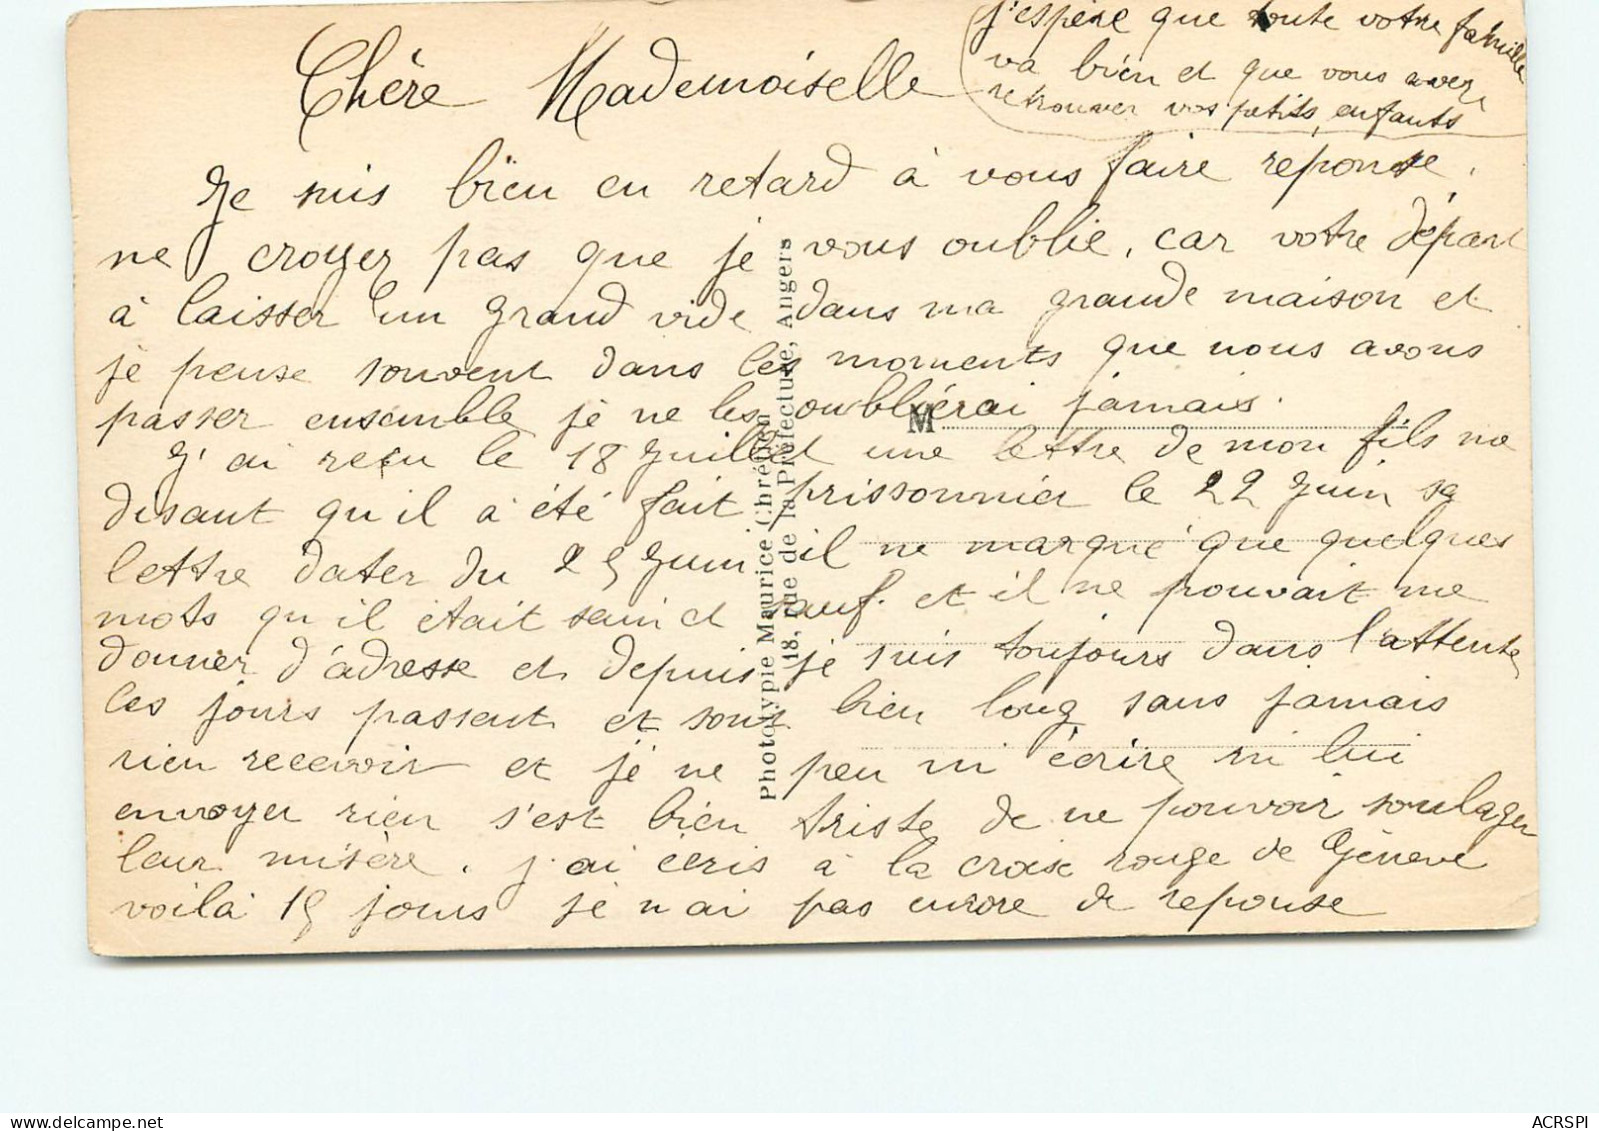 j'espère que toute votre famille
va bien et que vous avez
retrouver vos petits, enfants
Chère Mademoiselle
Je suis bien en retard à vous faire reponse,
ne croyer pas que je vous oublie, car votre départ
à laisser un grand vide dans ma grande maison et
je pense souvent dans les moments que nous avons
passer ensemble je ne les oublierai jamais.
J'ai reçu le 18 Juillet une lettre de mon fils me
disant qu'il a été fait prissonnier le 22 Juin sa
lettre dater du 25 Juin il ne marque que quelques
mots qu'il était sain et sauf. et il ne pouvait me
donner d'adresse et depuis je suis toujours dans l'attente
les jours passent et sont bien long sans jamais
rien recevoir et je ne peu ni écrire ni lui
envoyer rien s'est bien triste de ne pouvoir soulager
leur misère. j'ai ecris à la croix rouge de Génève
voilà 15 jours je n'ai pas encore de reponse
M
Phototypie Maurice Chrétien
18, rue de la Préfecture, Angers
ACRSPI